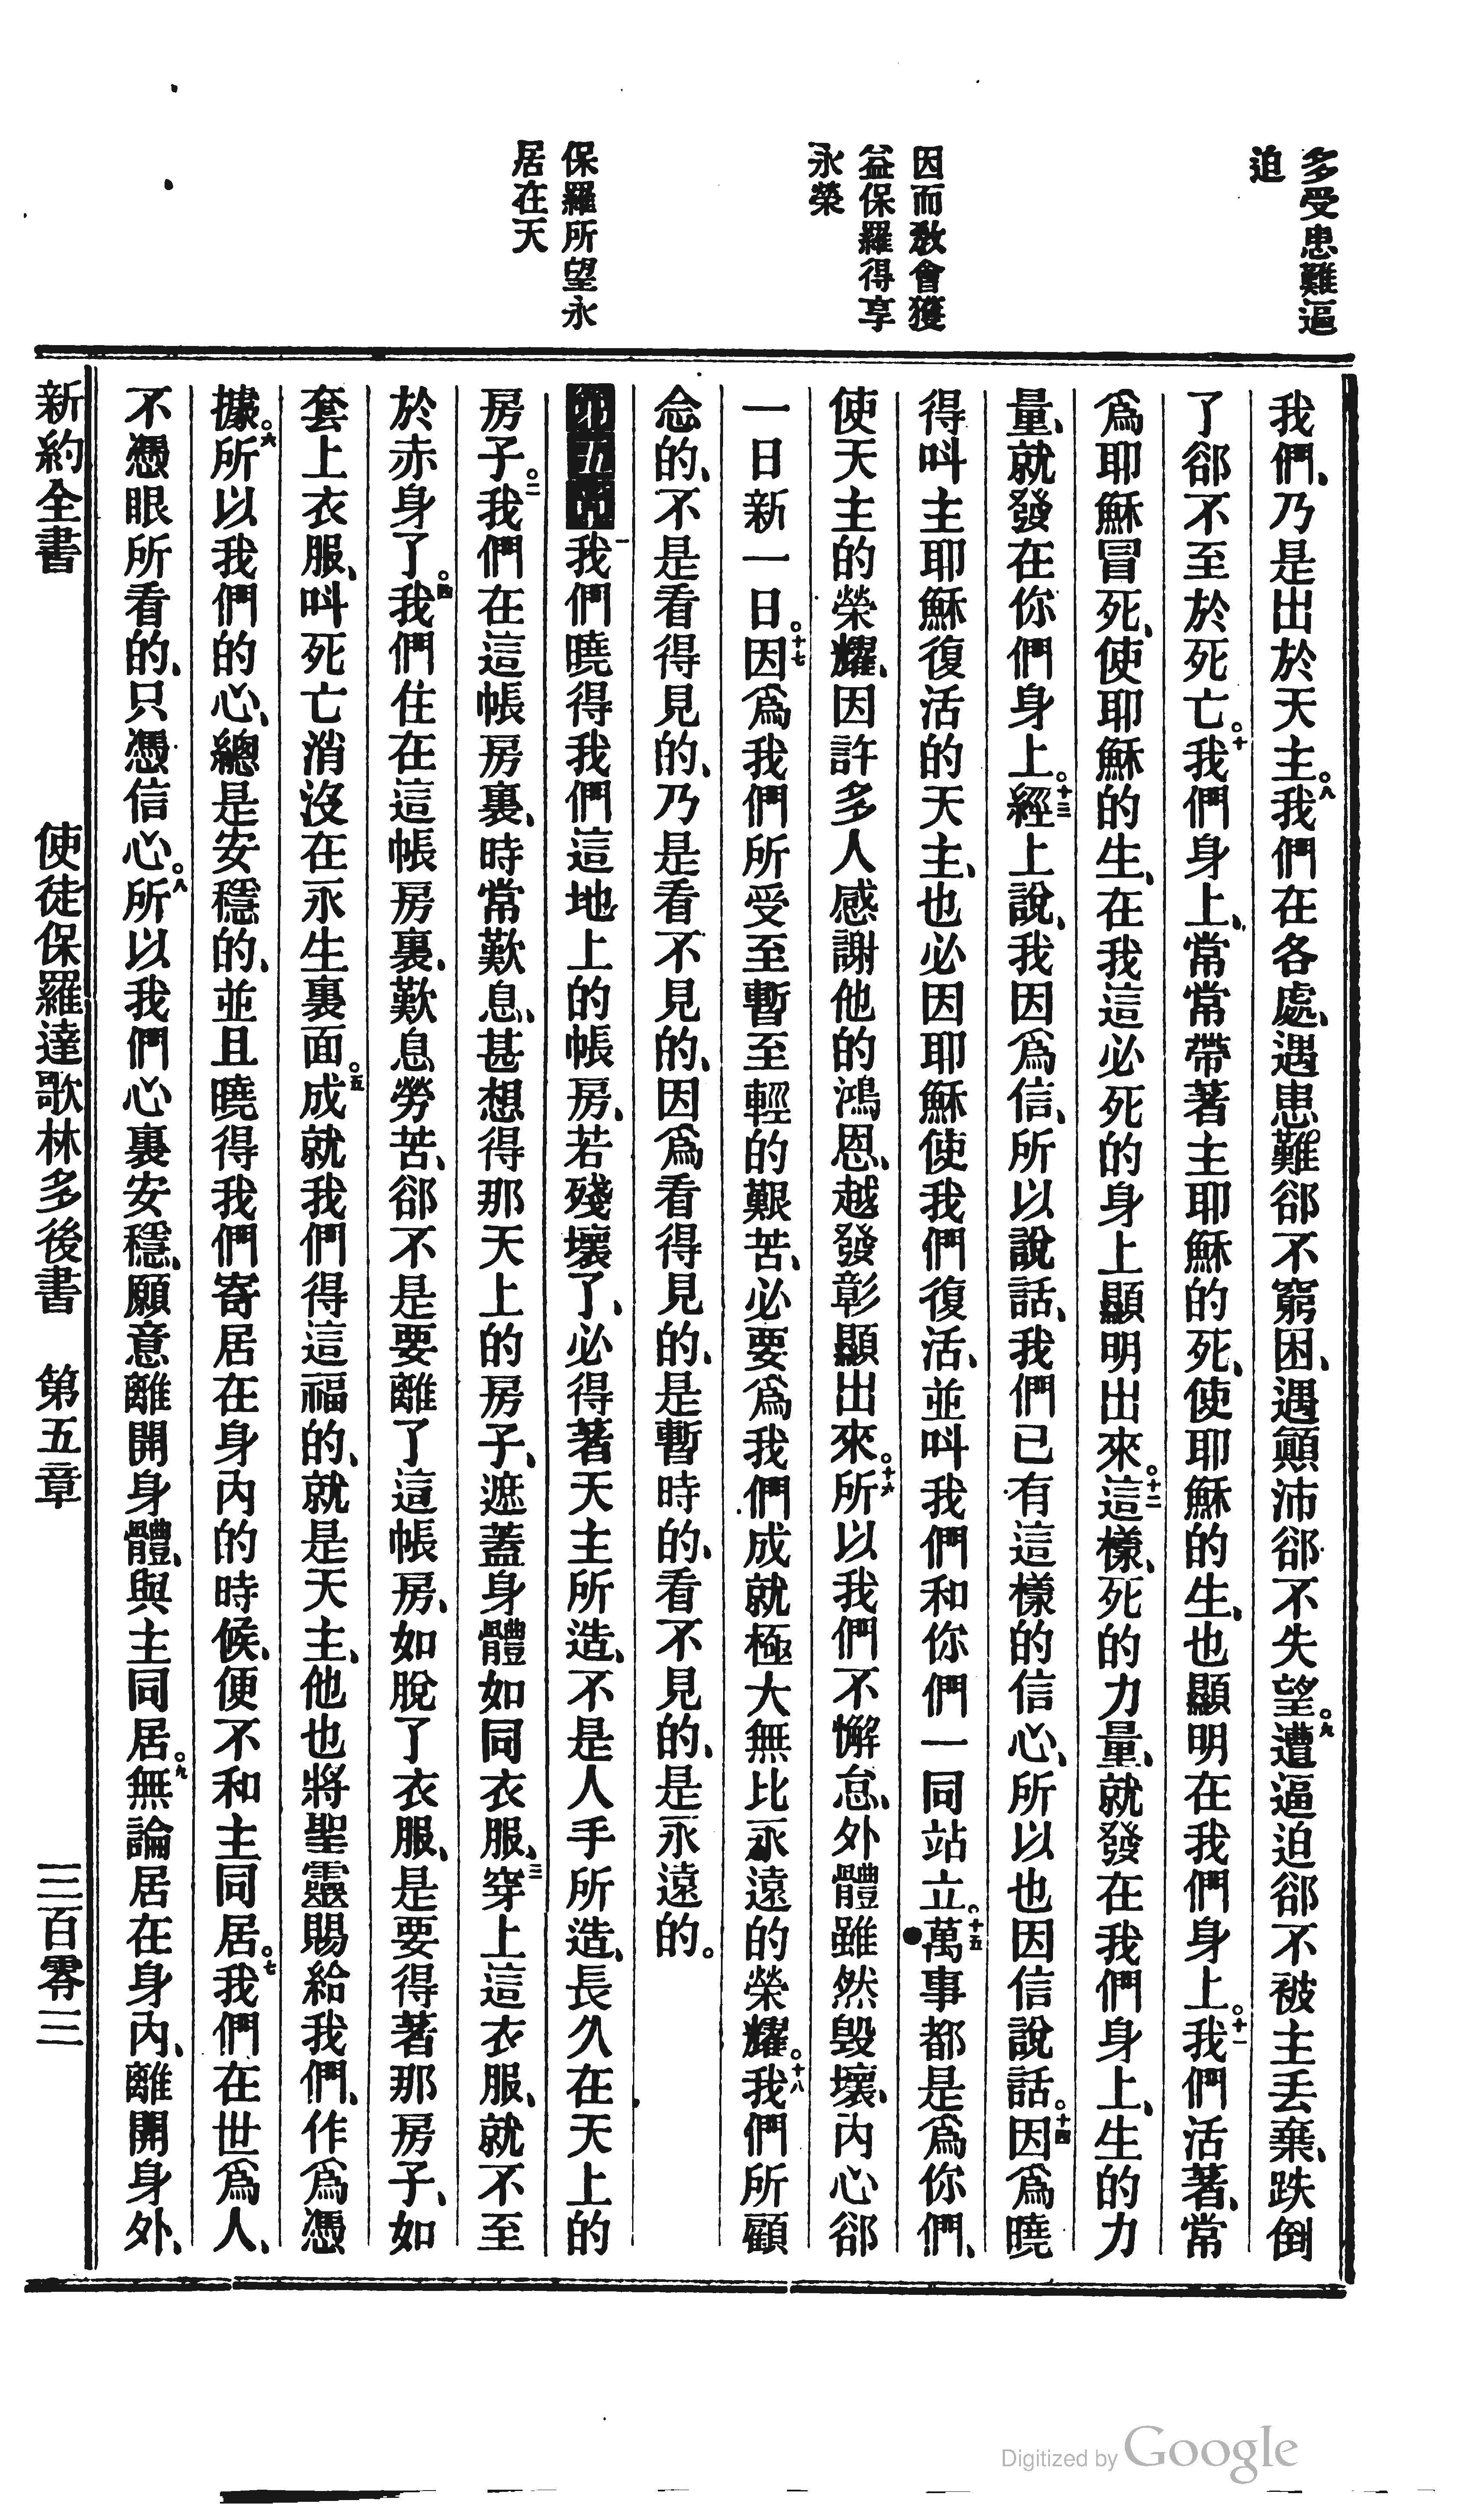 多受患難逼
迫
因而教會獲
益保羅得享
永榮
保羅所望永
居在天
我們、乃是出於天主。八我們在各處、遇患難郤不窮困、遇顚沛郤不失望。九遭逼迫郤不被主丟棄、跌倒
了郤不至於死亡。十我們身上、常常帶著主耶穌的死、使耶穌的生、也顯明在我們身上。十一我們活著、常
爲耶穌冒死、使耶穌的生、在我這必死的身上顯明出來。十二這樣、死的力量、就發在我們身上、生的力
量、就發在你們身上。十三經上說、我因爲信、所以說話、我們已有這樣的信心、所以也因信說話。十四因爲曉
得呌主耶穌復活的天主、也必因耶穌使我們復活、並呌我們和你們一同站立。十五萬事都是爲你們、
使天主的榮耀、因許多人感謝他的鴻恩、越發彰顯出來。十六所以我們不懈怠、外體雖然毀壞、內心郤
一日新一日。十七因爲我們所受至暫至輕的艱苦、必要爲我們成就極大無比永遠的榮耀。十八我們所顧
念的、不是看得見的、乃是看不見的、因爲看得見的、是暫時的、看不見的、是永遠的。
一我們曉得我們這地上的帳房、若殘壞了、必得著天主所造、不是人手所造、長久在天上的
房子。二我們在這帳房裏、時常歎息、甚想得那天上的房子、遮蓋身體如同衣服、三穿上這衣服、就不至
於赤身了。四我們住在這帳房裏、歎息勞苦、郤不是要離了這帳房、如脫了衣服、是要得著那房子、如
套上衣服、呌死亡消沒在永生裏面。五成就我們得這福的、就是天主、他也將聖靈賜給我們、作爲憑
據。六所以我們的心、總是安穩的、並且曉得我們寄居在身內的時候、便不和主同居。七我們在世爲人、
不憑眼所看的、只憑信心。八所以我們心裏安穩、願意離開身體、與主同居。九無論居在身內、離開身外、
新約全書 使徒保羅達歌林多後書 第五章 三百零三
Digitized by Google